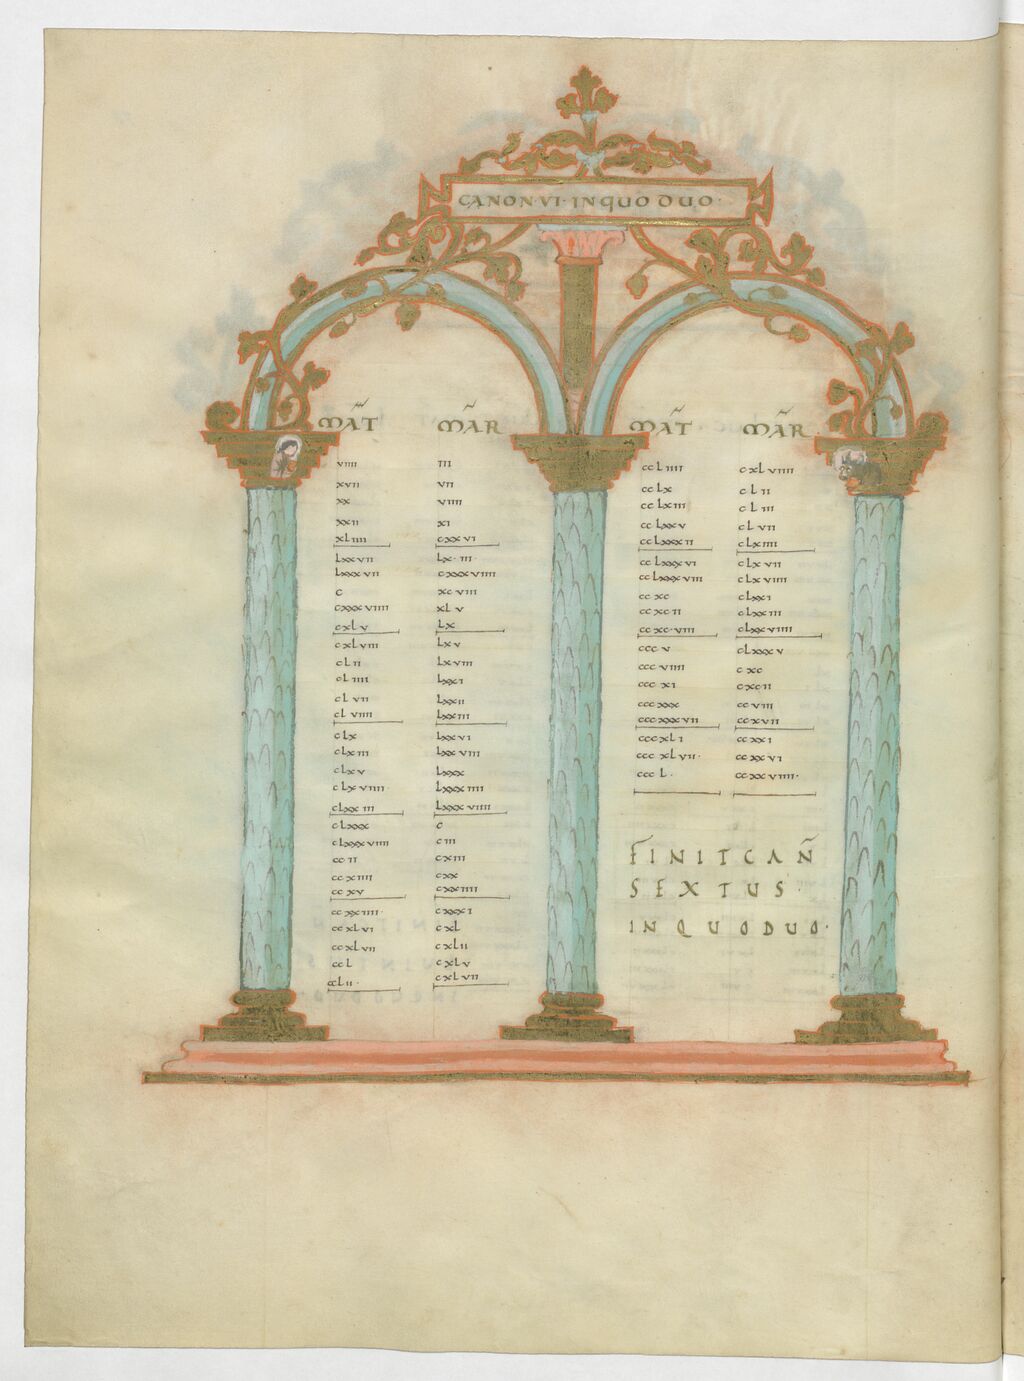 CANON·VI·INQUO DUO·
MAT MAR
VIIII III
XVII VII
XX VIIII
XXII XI
XLIIII CXXVI
LXXVII LX·III·
LXXXVII CXXXVIIII
C XCVIII
CXXXVIIII XLV
CXLV LX
CXLVIII LXV
CLII LXVIII
CLIIII LXXI
CLVII LXXII
CLVIIII LXXIII
CLX LXXVI
CLXIII LXXVIII
CLXV LXXX
CLXVIIII· LXXXIIII
CLXXIII LXXXVIIII
CLXXX C
CLXXXVIIII CIII
CCII CXIII
CCXIIII CXX
CCXV CXXIIII
CCXXIIII· CXXXI
CCXLVI CXL
CCXLVII CXLII
CCL CXLV
CCLII· CXLVII
MAT MAR
CCLIIII CXLVIIII
CCLX CLII
CCLXIII CLIII
CCLXXV CLVII
CCLXXXII CLXIIII
CCLXXXVI CLXVII
CCLXXXVIII CLXVIIII
CCXC CLXXI
CCXCII CLXXIII
CCXC·VIII CLXXVIIII
CCCV CLXXXV
CCCVIIII CXC
CCCXI CXCII
CCCXXX CCVIII
CCCXXXVII CCXVII
CCCXLI CCXXI
CCCXLVII· CCXXVI
CCCL· CCXXVIIII·
FINIT CAN̄
SEXTUS·
INQUODUO·